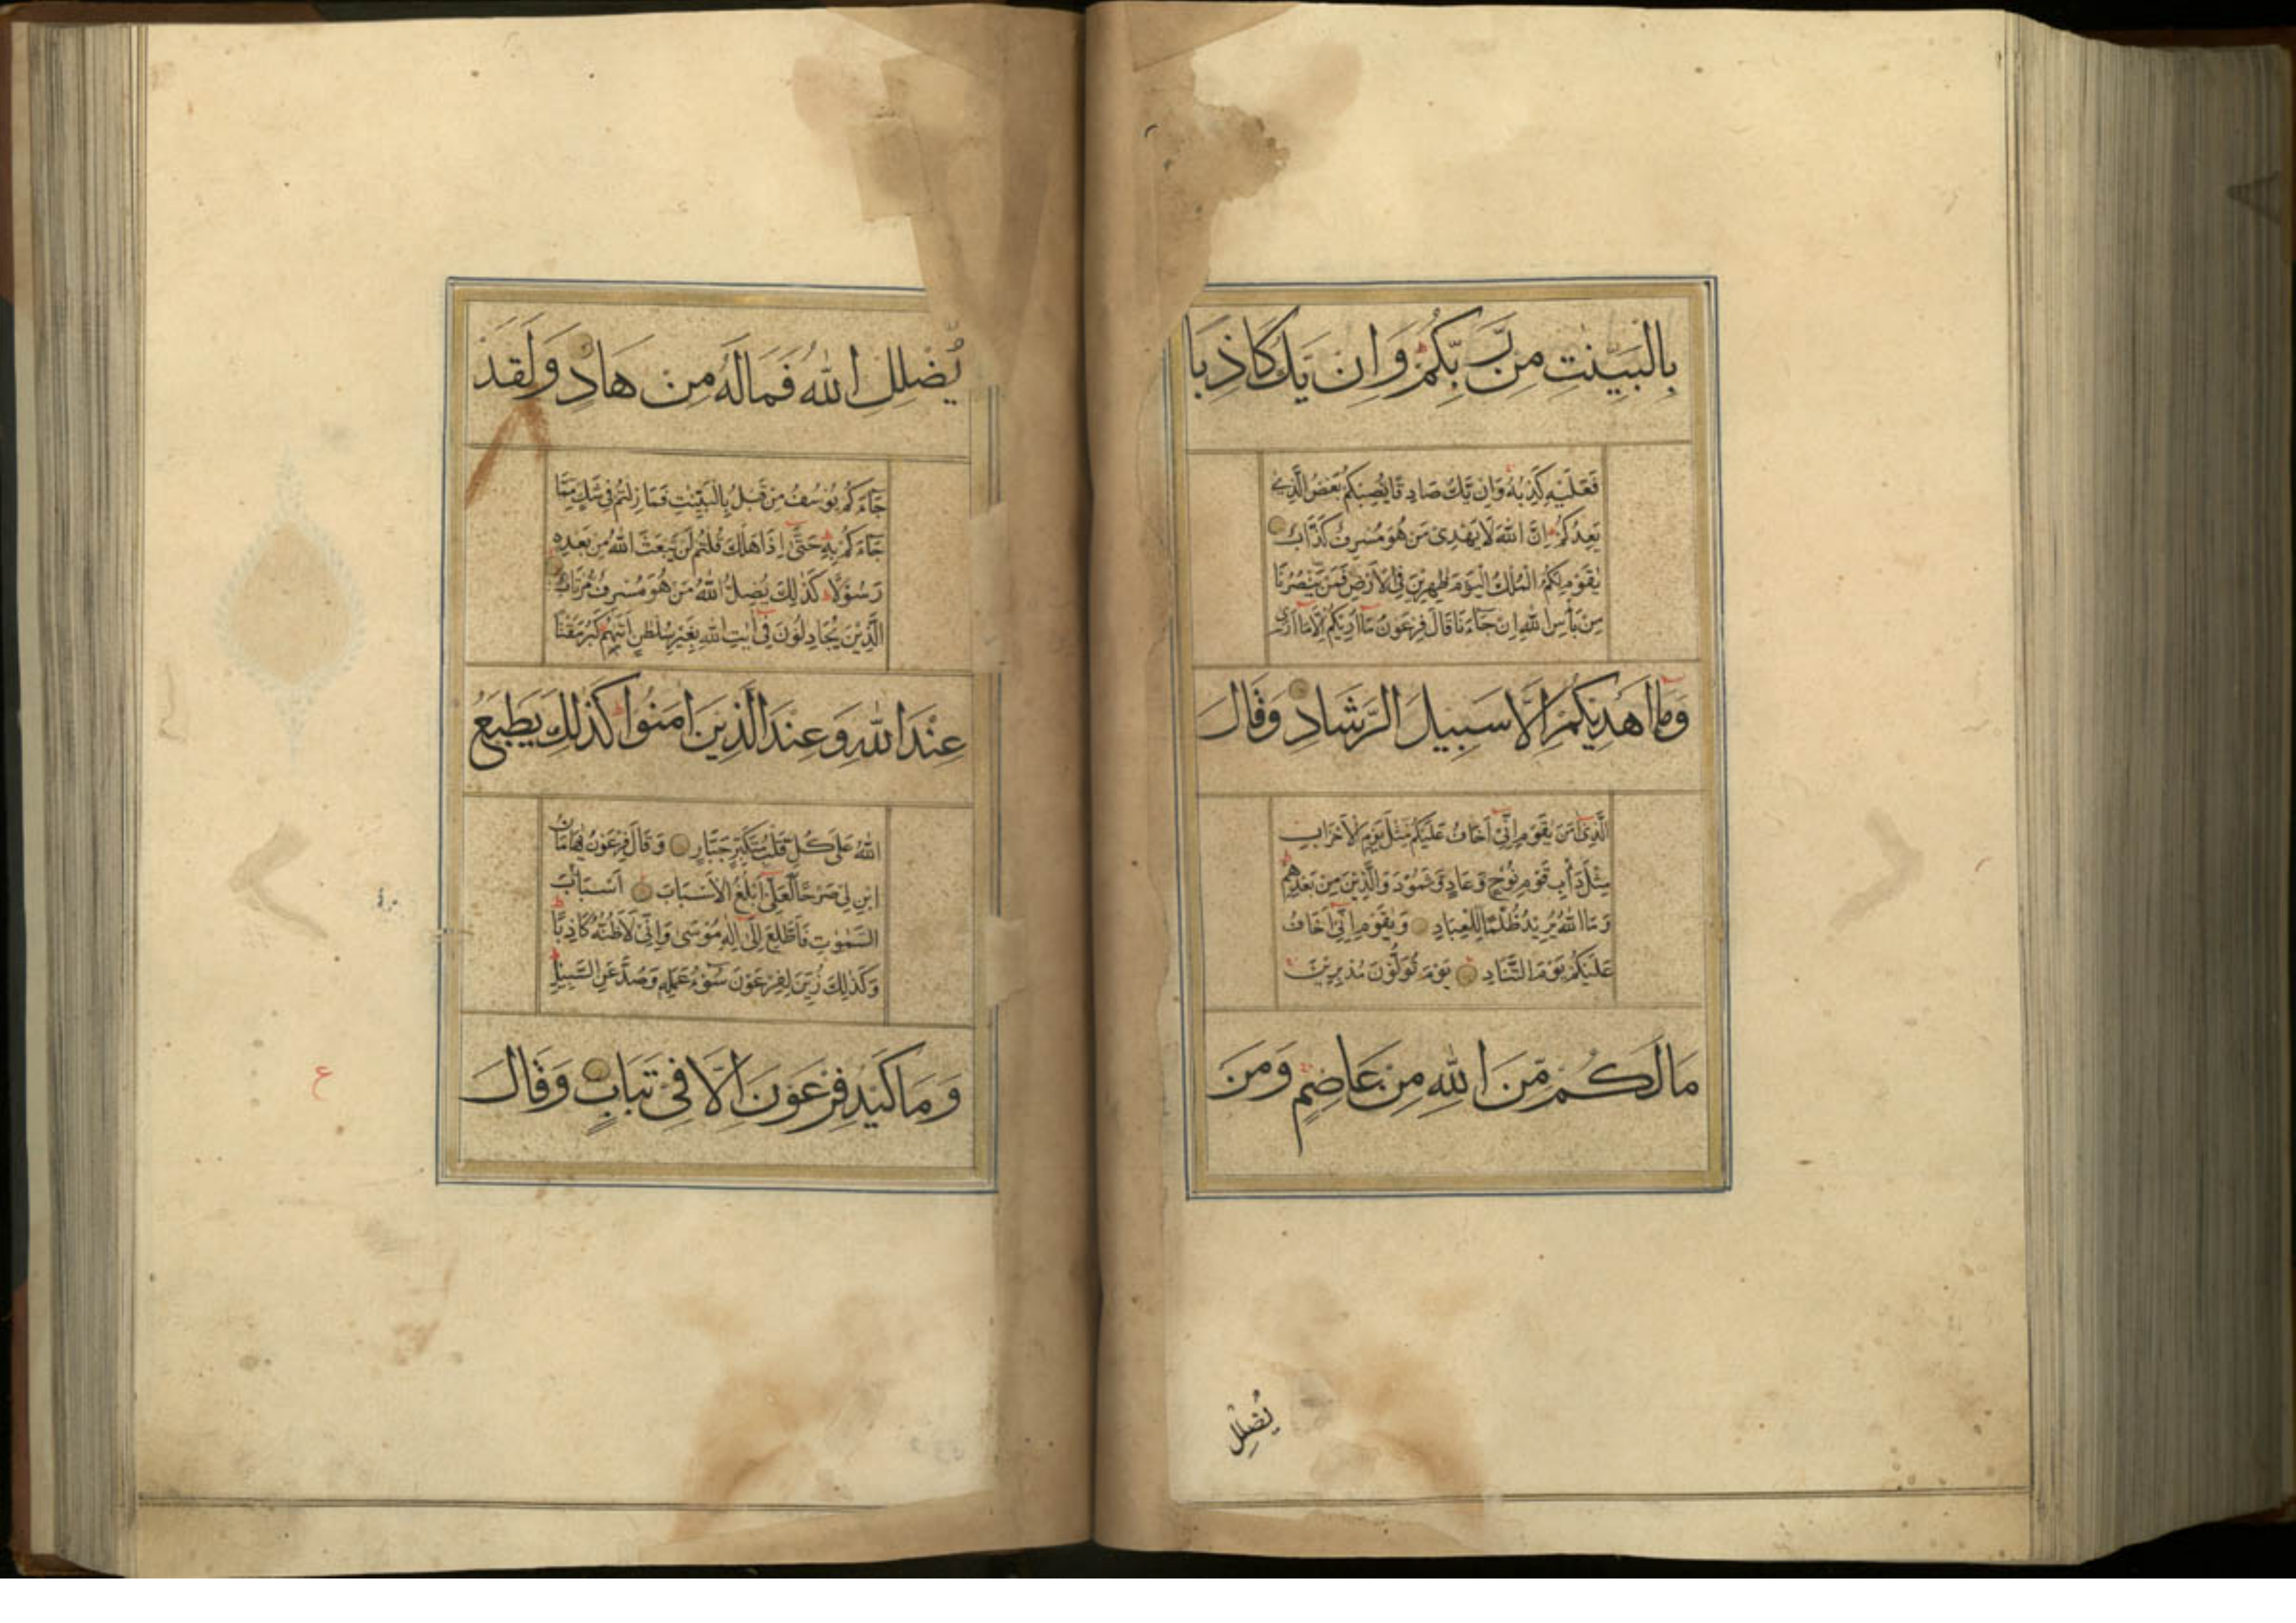 بِالْبَيِّنٰتِ مِنْ رَّبِّكُمْ وَاِنْ يَكُ كَاذِبًا
فَعَلَيْهِ كَذِبُهُ وَاِنْ يَّكُ صَادِقًا يُّصِبْكُمْ بَعْضُ الَّذِيْ
يَعِدُكُمْ اِنَّ اللّٰهَ لَا يَهْدِيْ مَنْ هُوَ مُسْرِفٌ كَذَّابٌ
يٰقَوْمِ لَكُمُ الْمُلْكُ الْيَوْمَ ظٰهِرِيْنَ فِي الْاَرْضِ فَمَنْ يَّنْصُرُنَا
مِنْ بَأْسِ اللّٰهِ اِنْ جَآءَنَا قَالَ فِرْعَوْنُ مَآ اُرِيْكُمْ اِلَّا مَآ اَرٰى
وَمَآ اَهْدِيْكُمْ اِلَّا سَبِيْلَ الرَّشَادِ وَقَالَ
الَّذِيْٓ اٰمَنَ يٰقَوْمِ اِنِّيْٓ اَخَافُ عَلَيْكُمْ مِّثْلَ يَوْمِ الْاَحْزَابِ
مِثْلَ دَأْبِ قَوْمِ نُوْحٍ وَّعَادٍ وَّثَمُوْدَ وَالَّذِيْنَ مِنْ بَعْدِهِمْ
وَمَا اللّٰهُ يُرِيْدُ ظُلْمًا لِّلْعِبَادِ وَيٰقَوْمِ اِنِّيْٓ اَخَافُ
عَلَيْكُمْ يَوْمَ التَّنَادِ يَوْمَ تُوَلُّوْنَ مُدْبِرِيْنَ
مَا لَكُمْ مِّنَ اللّٰهِ مِنْ عَاصِمٍ وَمَنْ
يُضْلِلِ
يُضْلِلِ اللّٰهُ فَمَا لَهُ مِنْ هَادٍ وَلَقَدْ
جَآءَكُمْ يُوْسُفُ مِنْ قَبْلُ بِالْبَيِّنٰتِ فَمَا زِلْتُمْ فِيْ شَكٍّ مِّمَّا
جَآءَكُمْ بِهٖ حَتّٰٓى اِذَا هَلَكَ قُلْتُمْ لَنْ يَّبْعَثَ اللّٰهُ مِنْ بَعْدِهٖ
رَسُوْلًا كَذٰلِكَ يُضِلُّ اللّٰهُ مَنْ هُوَ مُسْرِفٌ مُّرْتَابٌ
الَّذِيْنَ يُجَادِلُوْنَ فِيْٓ اٰيٰتِ اللّٰهِ بِغَيْرِ سُلْطٰنٍ اَتٰىهُمْ كَبُرَ مَقْتًا
عِنْدَ اللّٰهِ وَعِنْدَ الَّذِيْنَ اٰمَنُوْا كَذٰلِكَ يَطْبَعُ
اللّٰهُ عَلٰى كُلِّ قَلْبِ مُتَكَبِّرٍ جَبَّارٍ وَقَالَ فِرْعَوْنُ يٰهَامٰنُ
ابْنِ لِيْ صَرْحًا لَّعَلِّيْٓ اَبْلُغُ الْاَسْبَابَ اَسْبَابَ
السَّمٰوٰتِ فَاَطَّلِعَ اِلٰٓى اِلٰهِ مُوْسٰى وَاِنِّيْ لَاَظُنُّهُ كَاذِبًا
وَكَذٰلِكَ زُيِّنَ لِفِرْعَوْنَ سُوْٓءُ عَمَلِهٖ وَصُدَّ عَنِ السَّبِيْلِ
وَمَا كَيْدُ فِرْعَوْنَ اِلَّا فِيْ تَبَابٍ وَقَالَ
ع